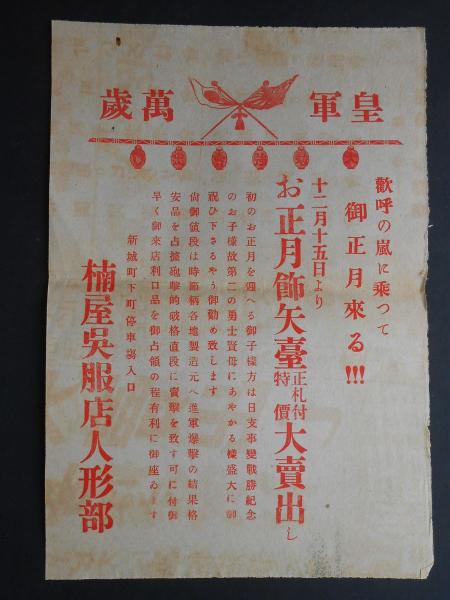 皇軍萬歲
歡呼の嵐に乘つて
御正月來る!!!
十二月十五日より
お正月飾矢臺正札付特價大賣出し
初のお正月を迎へる御子樣方は日支事變戰勝紀念
のお子樣故第二の勇士賢母にあやかる樣盛大に御
祝ひ下さるやう御勸め致します
尙御値段は時節柄各地製造元へ進軍爆擊の結果格
安品を占據砲擊的破格値段に賣擊を致す可に付御
早く御來店利口品を御占領の程有利に御座ゐます
新城町下町停車場入口
楠屋吳服店人形部